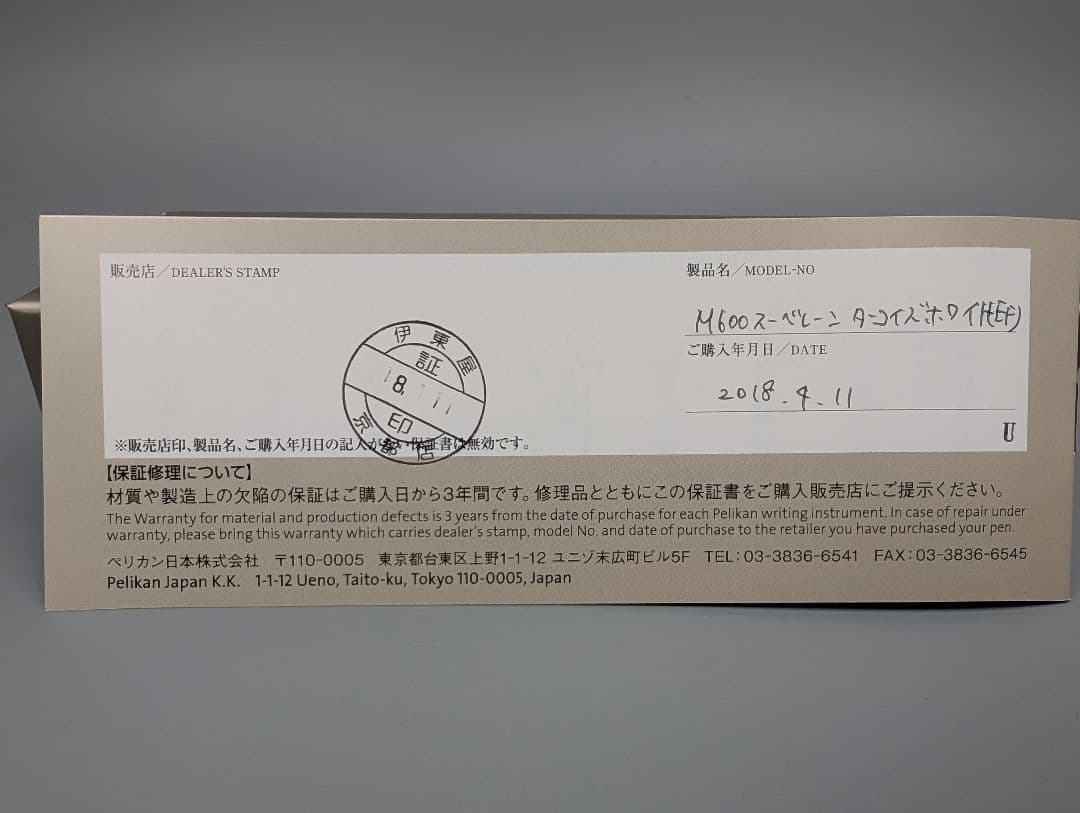 販売店／DEALER'S STAMP
伊東屋
証
18. 11
印
京都店
製品名／MODEL-NO
M600スーベレーン ターコイズホワイト(EF)
ご購入年月日／DATE
2018.4.11
U
※販売店印、製品名、ご購入年月日の記入がない保証書は無効です。
【保証修理について】
材質や製造上の欠陥の保証はご購入日から3年間です。修理品とともにこの保証書をご購入販売店にご提示ください。
The Warranty for material and production defects is 3 years from the date of purchase for each Pelikan writing instrument. In case of repair under
warranty, please bring this warranty which carries dealer's stamp, model No. and date of purchase to the retailer you have purchased your pen.
ペリカン日本株式会社 〒110-0005 東京都台東区上野1-1-12 ユニゾ末広町ビル5F TEL：03-3836-6541 FAX：03-3836-6545
Pelikan Japan K.K. 1-1-12 Ueno, Taito-ku, Tokyo 110-0005, Japan